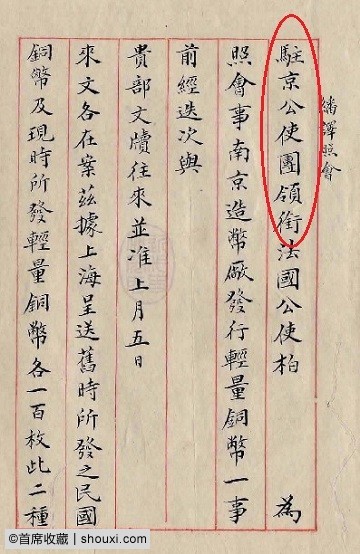 繙譯照會
駐京公使團領銜法國公使柏 為
照會事南京造幣廠發行輕量銅幣一事
前經迭次與
貴部文牘往來並准上月五日
來文各在案茲據上海呈送舊時所發之民國
銅幣及現時所發輕量銅幣各一百枚此二種
©首席收藏 | shouxi.com